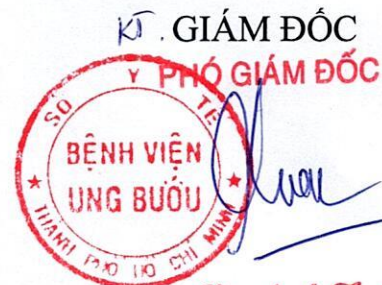 KT. GIÁM ĐỐC
PHÓ GIÁM ĐỐC
SỞ Y TẾ
BỆNH VIỆN
UNG BƯỚU
THÀNH PHỐ HỒ CHÍ MINH